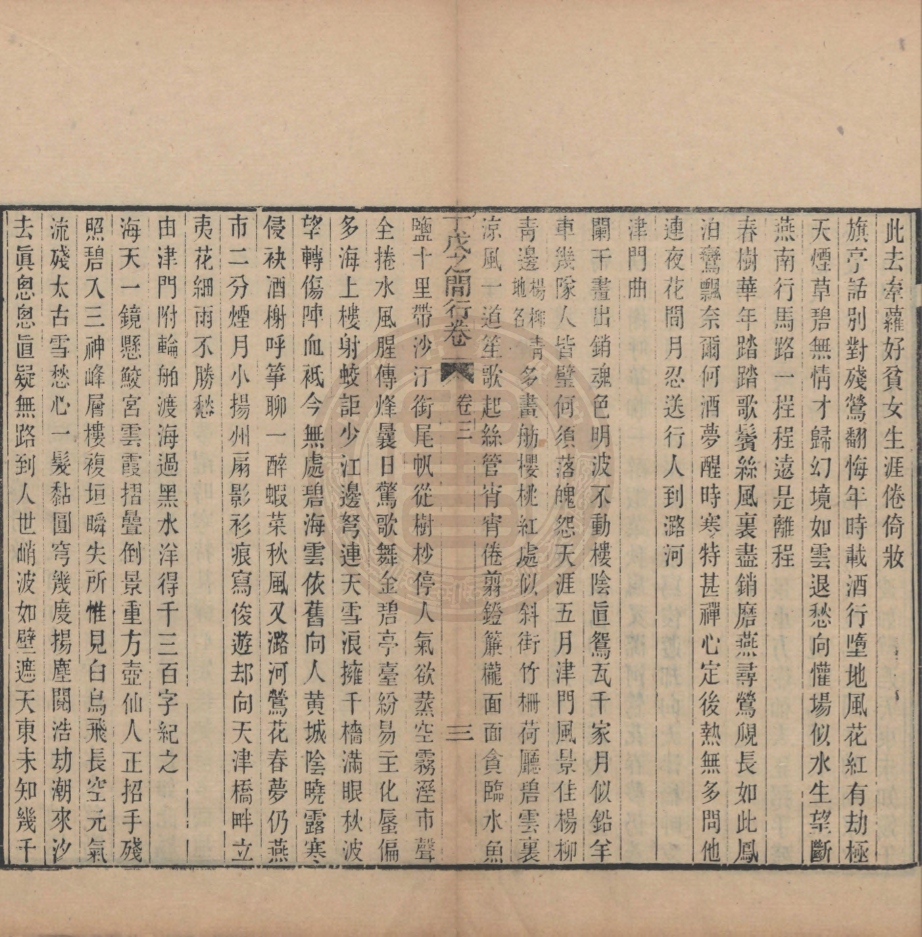 此去牽蘿好貧女生涯倦倚妝
旗亭話別對殘鶯翻悔年時載酒行墮地風花紅有劫極
天煙草碧無情才歸幻境如雲退愁向懽場似水生望斷
燕南行馬路一程程遠是離程
春樹華年踏踏歌鬢絲風裏盡銷磨燕尋鶯覛長如此鳳
泊鸞飄奈爾何酒夢醒時寒特甚禪心定後熱無多問他
連夜花間月忍送行人到潞河
津門曲
闌干畫出銷魂色明波不動樓陰直鴛瓦千家月似鉛羊
車幾隊人皆璧何須落魄怨天涯五月津門風景佳楊柳
青邊楊柳青地名多畫舫櫻桃紅處似斜街竹柵荷廳碧雲裏
涼風一道笙歌起絲管宵宵倦翦鐙簾櫳面面貪臨水魚
丁戊之閒行卷 卷三 三
鹽十里帶沙汀街尾帆從樹杪停人氣欲蒸空霧溼市聲
全捲水風腥傳烽曩日驚歌舞金碧亭臺紛易主化蜃偏
多海上樓射蛟詎少江邊弩連天雪浪擁千檣滿眼秋波
望轉傷陣血祗今無處碧海雲依舊向人黄城陰曉露寒
侵袂酒榭呼箏聊一醉蝦菜秋風又潞河鶯花春夢仍燕
市二分煙月小揚州扇影衫痕寫俊遊却向天津橋畔立
夷花細雨不勝愁
由津門附輪舶渡海過黑水洋得千三百字紀之
海天一鏡懸鮫宮雲霞摺疊倒景重方壺仙人正招手殘
照碧入三神峰層樓複垣瞬失所惟見白鳥飛長空元氣
流殘太古雪愁心一髮黏圓穹幾度揚塵閱浩劫潮來汐
去眞悤悤直疑無路到人世峭波如壁遮天東未知幾千